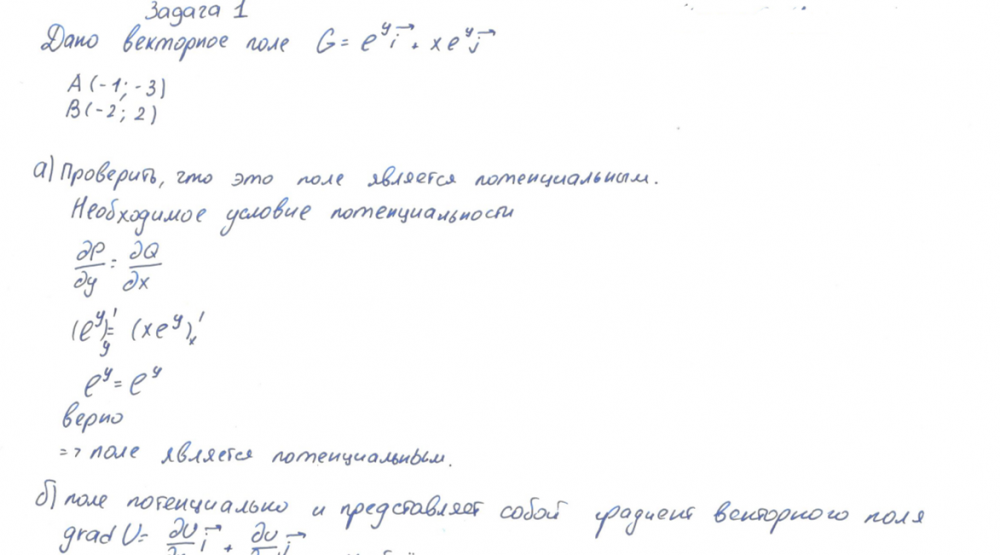 Задача 1
Дано векторное поле G = e^y i⃗ + x e^y j⃗
A (-1; -3)
B (-2; 2)
а) Проверить, что это поле является потенциальным.
Необходимое условие потенциальности
∂P/∂y = ∂Q/∂x
(e^y)'_y = (x e^y)'_x
e^y = e^y
верно
=> поле является потенциальным.
б) поле потенциально и представляет собой градиент векторного поля
grad U = ∂U i⃗ + ∂U j⃗